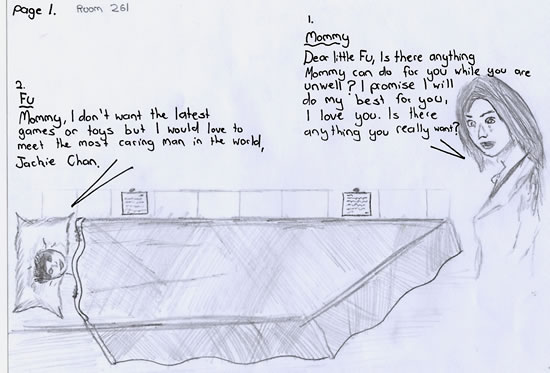 page 1.
Room 261
1.
Mommy
Dear little Fu, Is there anything
Mommy can do for you while you are
unwell? I promise I will
do my best for you,
I love you. Is there
anything you really want?
2.
Fu
Mommy, I don't want the latest
games or toys but I would love to
meet the most caring man in the world,
Jachie Chan.